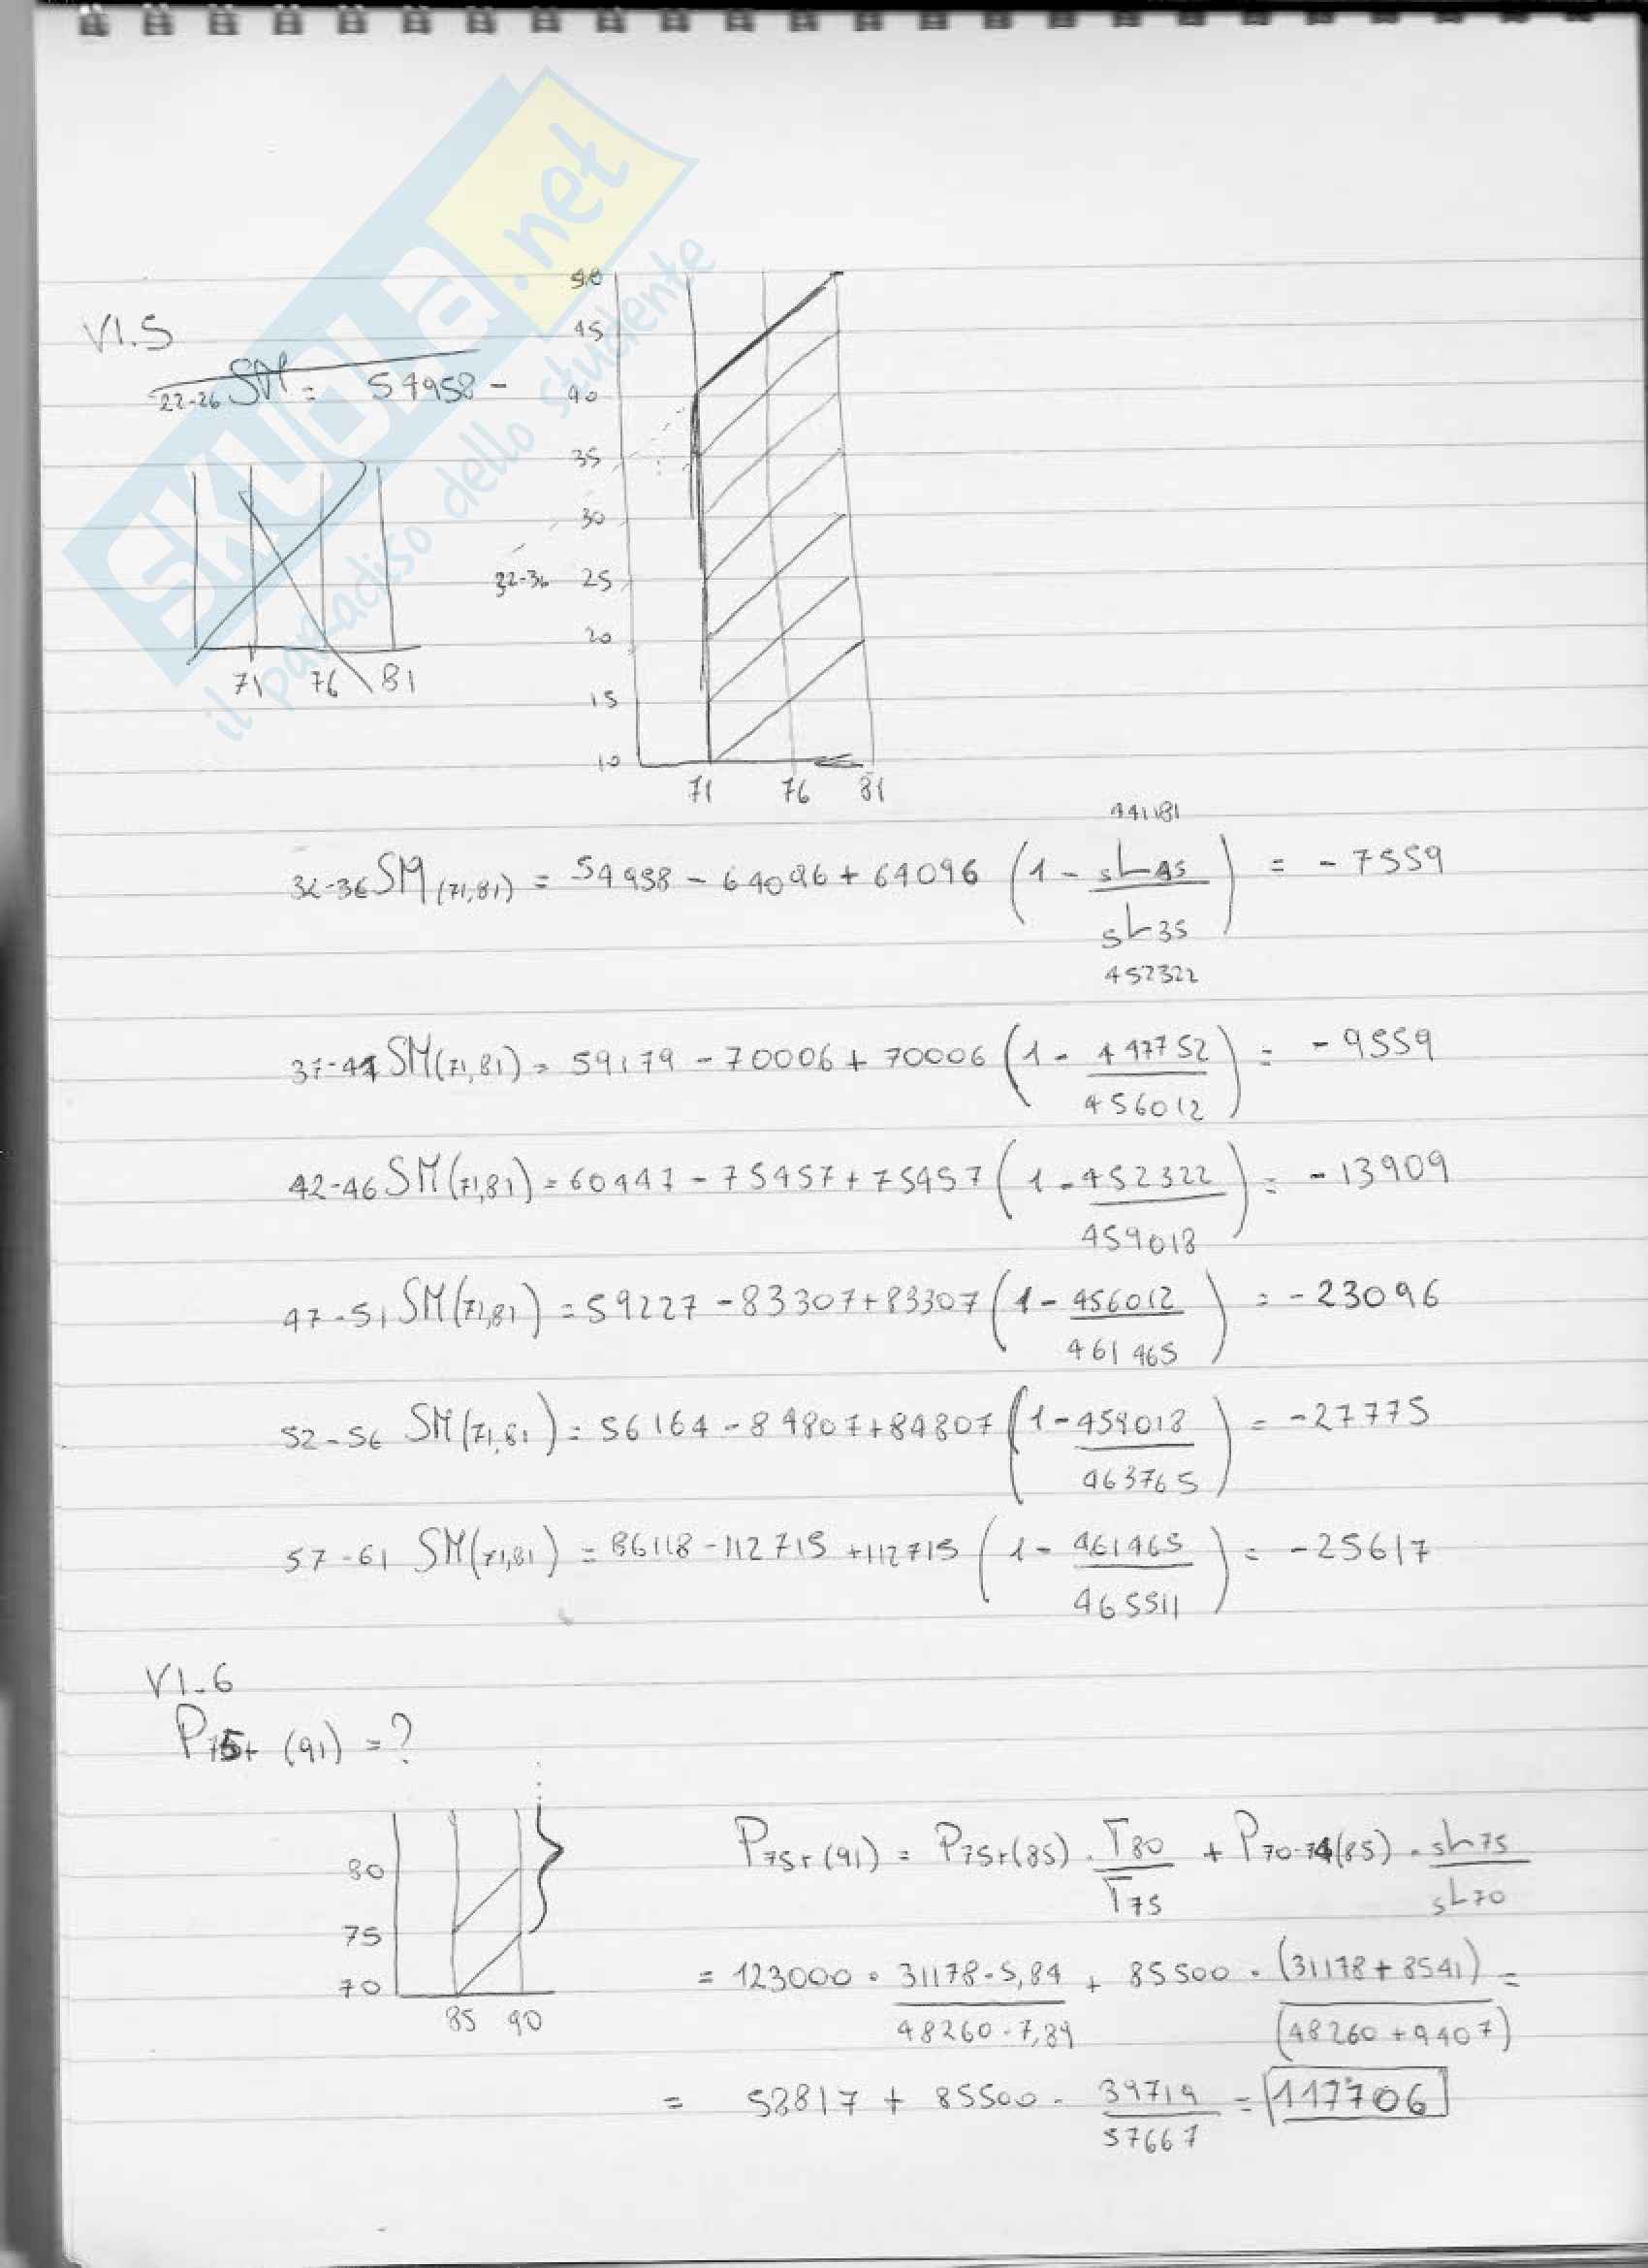 SKUOLA.net
il paradiso dello studente
VI.5
22-26 SM = 54958 -
71 76 81
50
45
40
35
30
32-36 25
20
15
10
71 76 81
441181
32-36 SM (71,81) = 54958 - 64096 + 64096 (1 - 5L45 / 5L35) = - 7559
457322
37-41 SM (71,81) = 59179 - 70006 + 70006 (1 - 447752 / 456012) = - 9559
42-46 SM (71,81) = 60447 - 75457 + 75457 (1 - 452322 / 459018) = - 13909
47-51 SM (71,81) = 59227 - 83307 + 83307 (1 - 456012 / 461465) = - 23096
52-56 SM (71,81) = 56164 - 84807 + 84807 (1 - 459018 / 463765) = - 27775
57-61 SM (71,81) = 86118 - 112715 + 112715 (1 - 461465 / 465511) = - 25617
VI.6
P75+ (91) = ?
80
75
70
85 90
P75+ (91) = P75+ (85) · T80 / T75 + P70-74 (85) · 5L75 / 5L70
= 123000 · 31178 · 5,84 / 48260 · 7,84 + 85500 · (31178 + 8541) / (48260 + 9407) =
= 52817 + 85500 · 39719 / 57667 = 117706